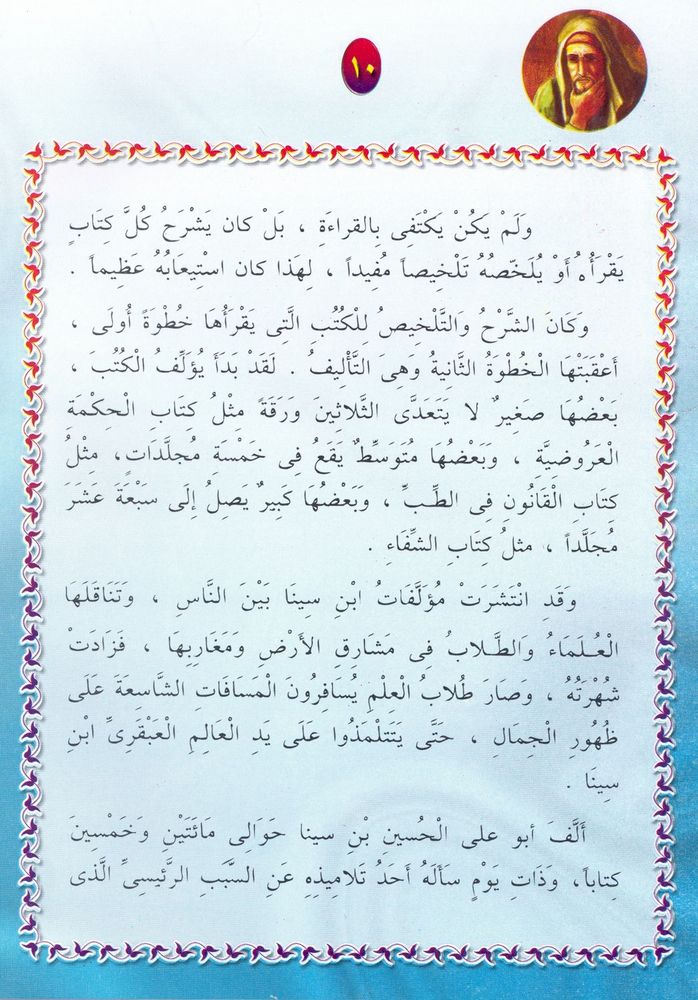 ١٠
وَلَمْ يَكُنْ يَكْتَفِى بِالقراءَةِ ، بَلْ كان يَشْرَحُ كُلَّ كِتَابٍ
يَقْرَأُه أَوْ يُلَخّصُهُ تَلْخِيصاً مُفِيداً ، لِهَذا كان اسْتِيعَابُهُ عَظِيماً .
وَكَانَ الشَّرْحُ وَالتَّلْخِيصُ لِلْكُتُبِ الَّتى يَقْرَأُهَا خُطْوَةً أُولَى ،
أَعْقَبَتْهَا الْخُطْوَةُ الثَّانِيَةُ وَهىَ التَّأْلِيفُ . لَقَدْ بَدَأَ يُؤَلِّفُ الْكُتُبَ ،
بَعْضُهَا صغِيرٌ لا يَتَعَدَّى الثَّلاثينَ وَرَقَةً مِثْلُ كِتَابِ الْحِكْمَةِ
الْعَرُوضِيَّةِ ، وَبَعْضُهَا مُتَوَسِّطٌ يَقَعُ فِى خَمْسَة مُجلَّدَاتٍ، مثْلُ
كِتَابِ الْقَانُونِ فِى الطِّبِّ ، وَبَعْضُهَا كَبِيرٌ يَصِلُ إِلَى سَبْعَةَ عَشَرَ
مُجَلَّداً ، مثلُ كِتَابِ الشِّفَاءِ .
وَقَدِ انْتَشَرَتْ مُؤَلَّفَاتُ ابْنِ سِينَا بَيْنَ النَّاسِ ، وَتَنَاقَلَهَا
الْعُلَمَاءُ وَالطَّلابُ فى مَشَارِقِ الأَرْضِ وَمَغَارِبِهَا ، فَزَادَتْ
شُهْرَتُهُ ، وَصَارَ طُلابُ الْعِلْمِ يُسَافِرُونَ الْمَسَافَاتِ الشَّاسِعَةَ عَلَى
ظُهُورِ الْجِمَالِ ، حَتَّى يَتَتَلْمَذُوا عَلَى يَدِ الْعَالِمِ الْعَبْقَرِىِّ ابْنِ
سِينَا .
أَلَّفَ أبو على الْحُسينِ بْنِ سينا حَوَالِى مَائَتَيْنِ وَخَمْسِينَ
كِتاباً، وَذَاتَ يَوْمٍ سَأَلَهُ أَحَدُ تَلامِيذِهِ عَنِ السَّبَبِ الرَّئِيسِىِّ الَّذى